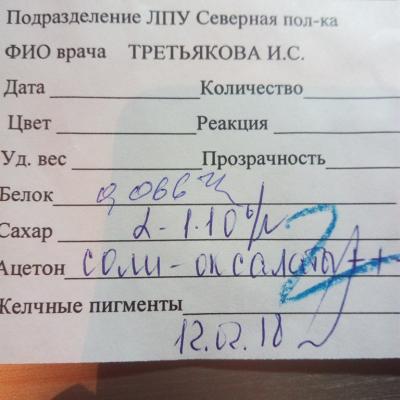 Подразделение ЛПУ Северная пол-ка
ФИО врача ТРЕТЬЯКОВА И.С.
Дата Количество
Цвет Реакция
Уд. вес Прозрачность
Белок 0,066
Сахар L-1-1·10⁶/л
Ацетон соли-оксалаты ++
Желчные пигменты
12.02.18